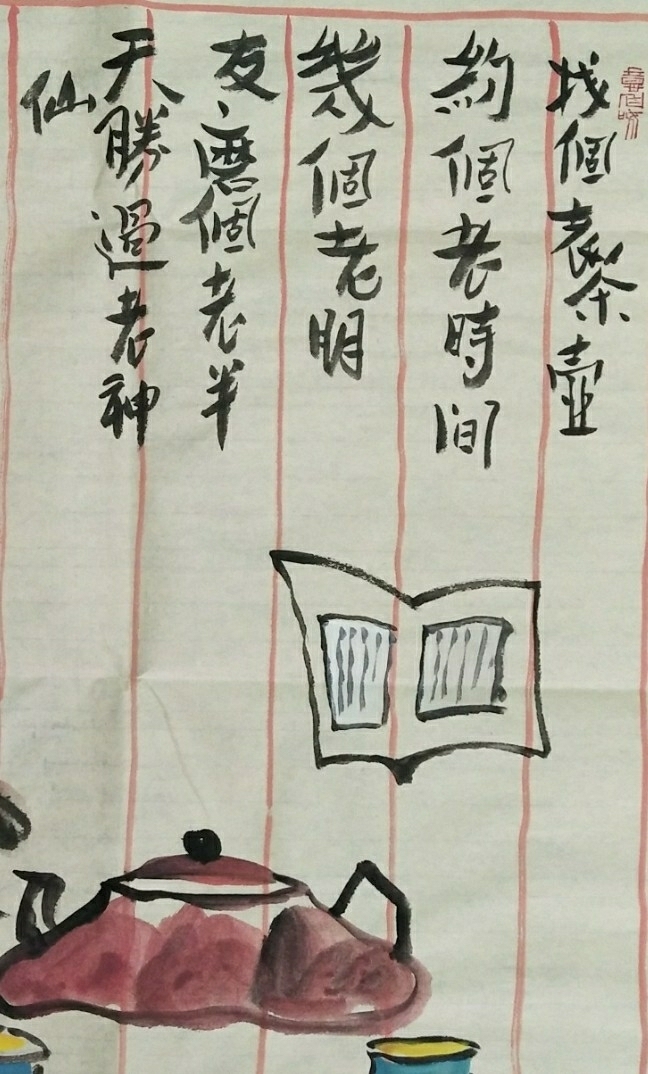 找個老茶壺
約個老時間
幾個老朋
友磨個老半
天勝過老神
仙